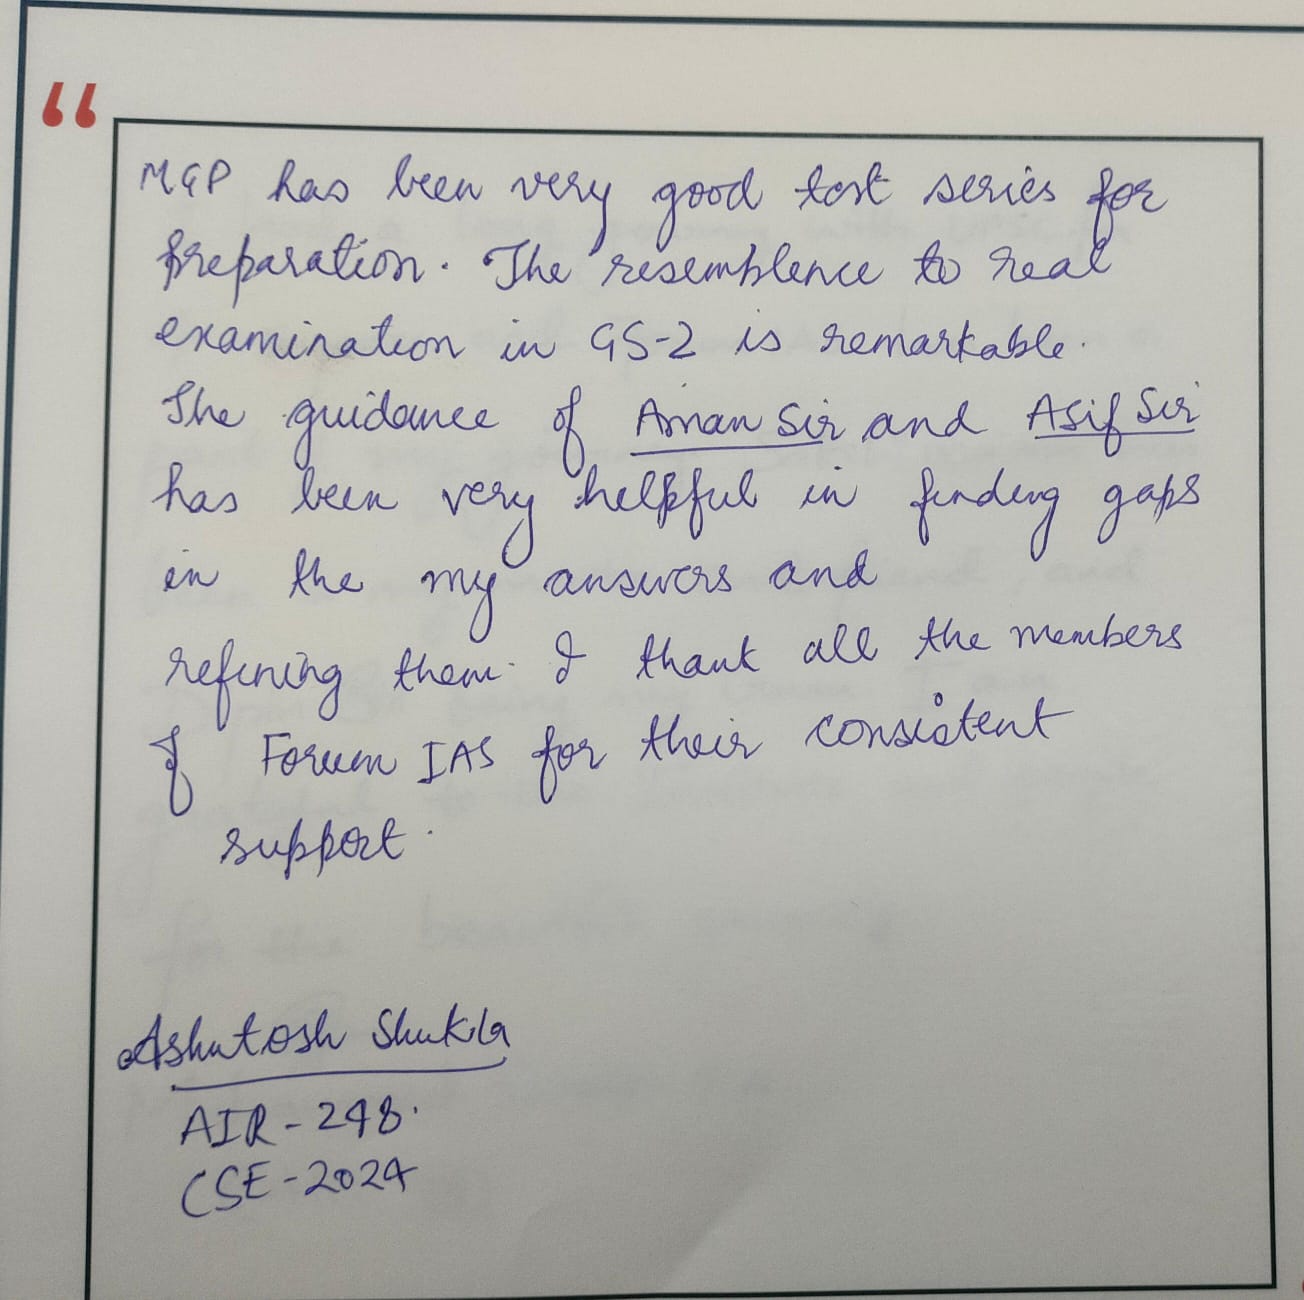 “
MGP has been very good test series for
preparation. The resemblence to real
examination in GS-2 is remarkable.
The guidance of Aman Sir and Asif Sir
has been very helpful in finding gaps
in the my answers and
refining them. I thank all the members
of Forum IAS for their consistent
support.
Ashutosh Shukla
AIR-248.
CSE-2024